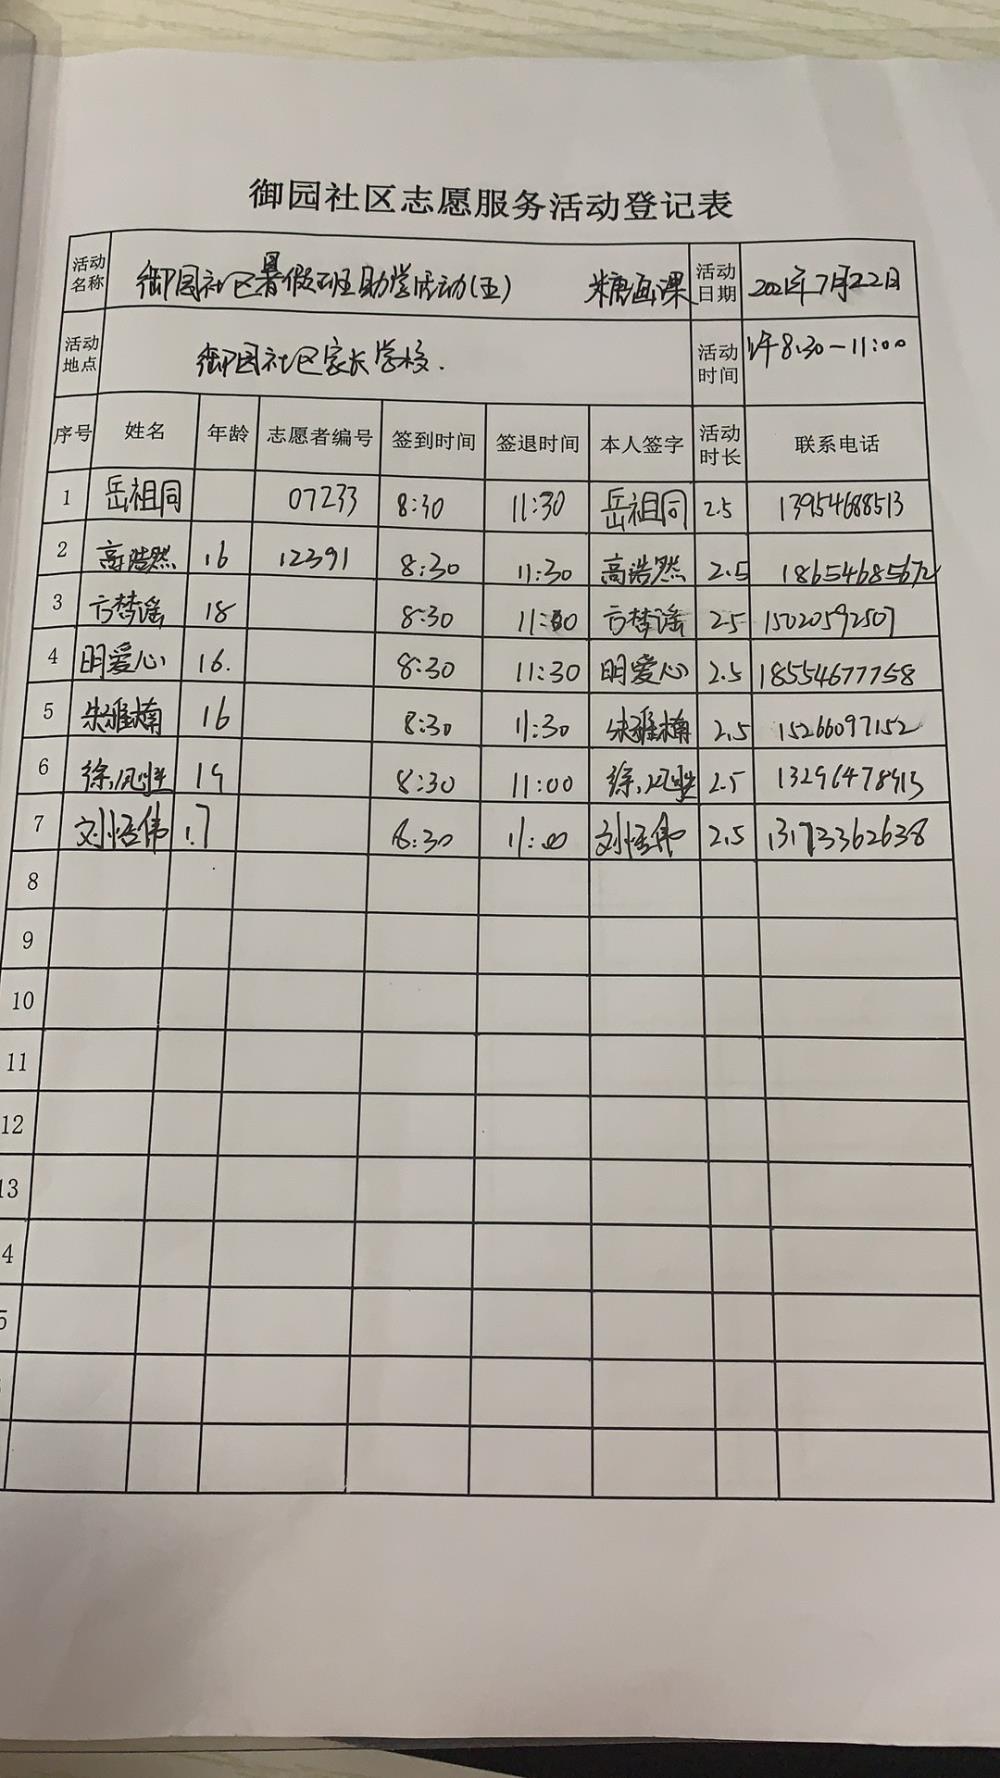 御园社区志愿服务活动登记表
活动名称 御园社区暑假班助学活动(五) 糖画课 活动日期 2021年7月22日
活动地点 御园社区家长学校. 活动时间 上午8:30-11:00
序号 姓名 年龄 志愿者编号 签到时间 签退时间 本人签字 活动时长 联系电话
1 岳祖同 07233 8:30 11:30 岳祖同 2.5 13954688513
2 高浩然 16 12391 8:30 11:30 高浩然 2.5 18654685672
3 方梦谣 18 8:30 11:30 方梦谣 2.5 15020592507
4 明爱心 16. 8:30 11:30 明爱心 2.5 18554677758
5 朱雅楠 16 8:30 11:30 朱雅楠 2.5 15266097152
6 徐 19 8:30 11:00 徐 2.5 13296478913
7 刘恪伟 17 8:30 11:00 刘恪伟 2.5 13173362638
8
9
10
11
12
13
4
5